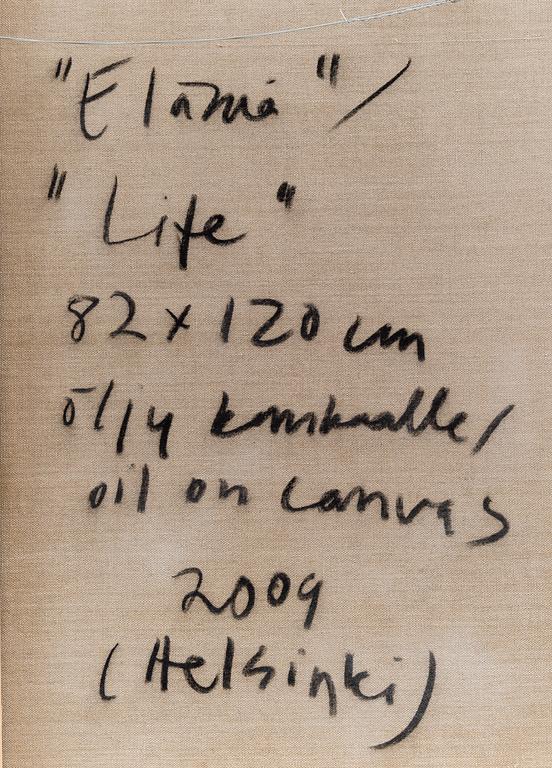 "Elämä"/
"Life"
82 x 120 cm
öljy kankaalle/
oil on canvas
2009
(Helsinki)